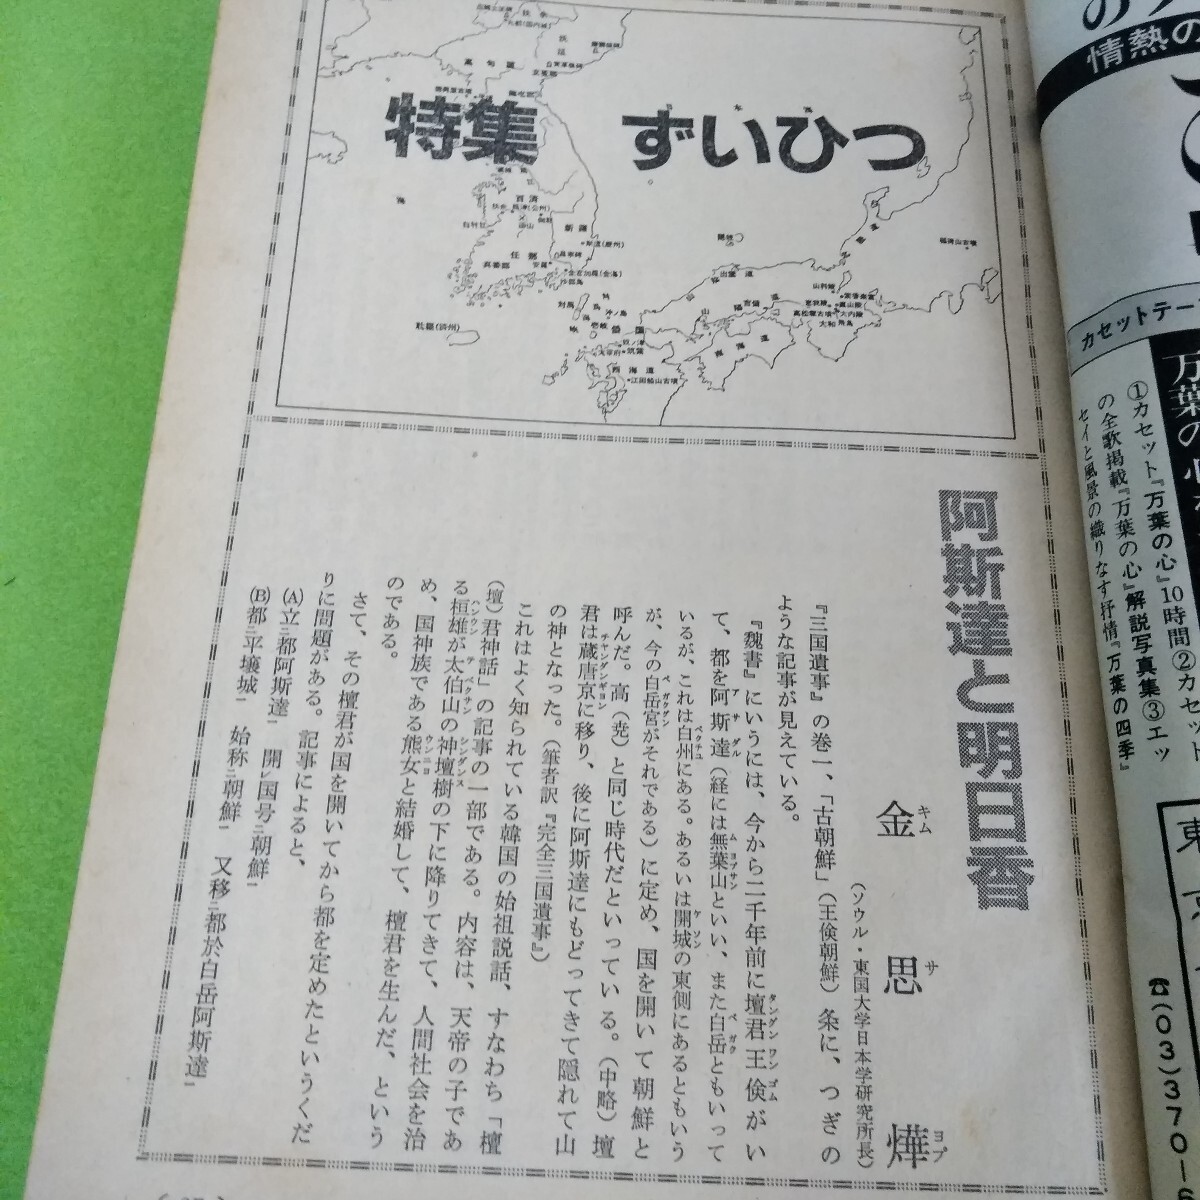 特集 ずいひつ
高句麗
百済
新羅
任那
耽羅(済州)
対馬
沖ノ島
壱岐
太宰府
西海道
江田船山古墳
山陽道
南海道
吉備
高松塚古墳
大和
稲荷山古墳
阿斯達と明日香
金思燁
キム サ ヨプ
(ソウル・東国大学日本学研究所長)
『三国遺事』の巻一、「古朝鮮」(王倹朝鮮)条に、つぎの
ような記事が見えている。
『魏書』にいうには、今から二千年前に壇君王倹がい
て、都を阿斯達(経には無葉山といい、また白岳ともいって
いるが、これは白州にある。あるいは開城の東側にあるともいう
が、今の白岳宮がそれである)に定め、国を開いて朝鮮と
呼んだ。高(尭)と同じ時代だといっている。(中略)壇
君は蔵唐京に移り、後に阿斯達にもどってきて隠れて山
の神となった。(筆者訳『完全三国遺事』)
これはよく知られている韓国の始祖説話、すなわち「檀
(壇)君神話」の記事の一部である。内容は、天帝の子であ
る桓雄が太伯山の神壇樹の下に降りてきて、人間社会を治
め、国神族である熊女と結婚して、檀君を生んだ、という
のである。
さて、その檀君が国を開いてから都を定めたというくだ
りに問題がある。記事によると、
(A)立二都阿斯達一 開レ国号二朝鮮一
(B)都二平壌城一 始称二朝鮮一 又移二都於白岳阿斯達一
情熱の
カセットテー
万葉の心
①カセット『万葉の心』10時間②カセッ
の全歌掲載『万葉の心』解説写真集③エッ
セイと風景の織りなす抒情『万葉の四季』
東京
☎(03)370-